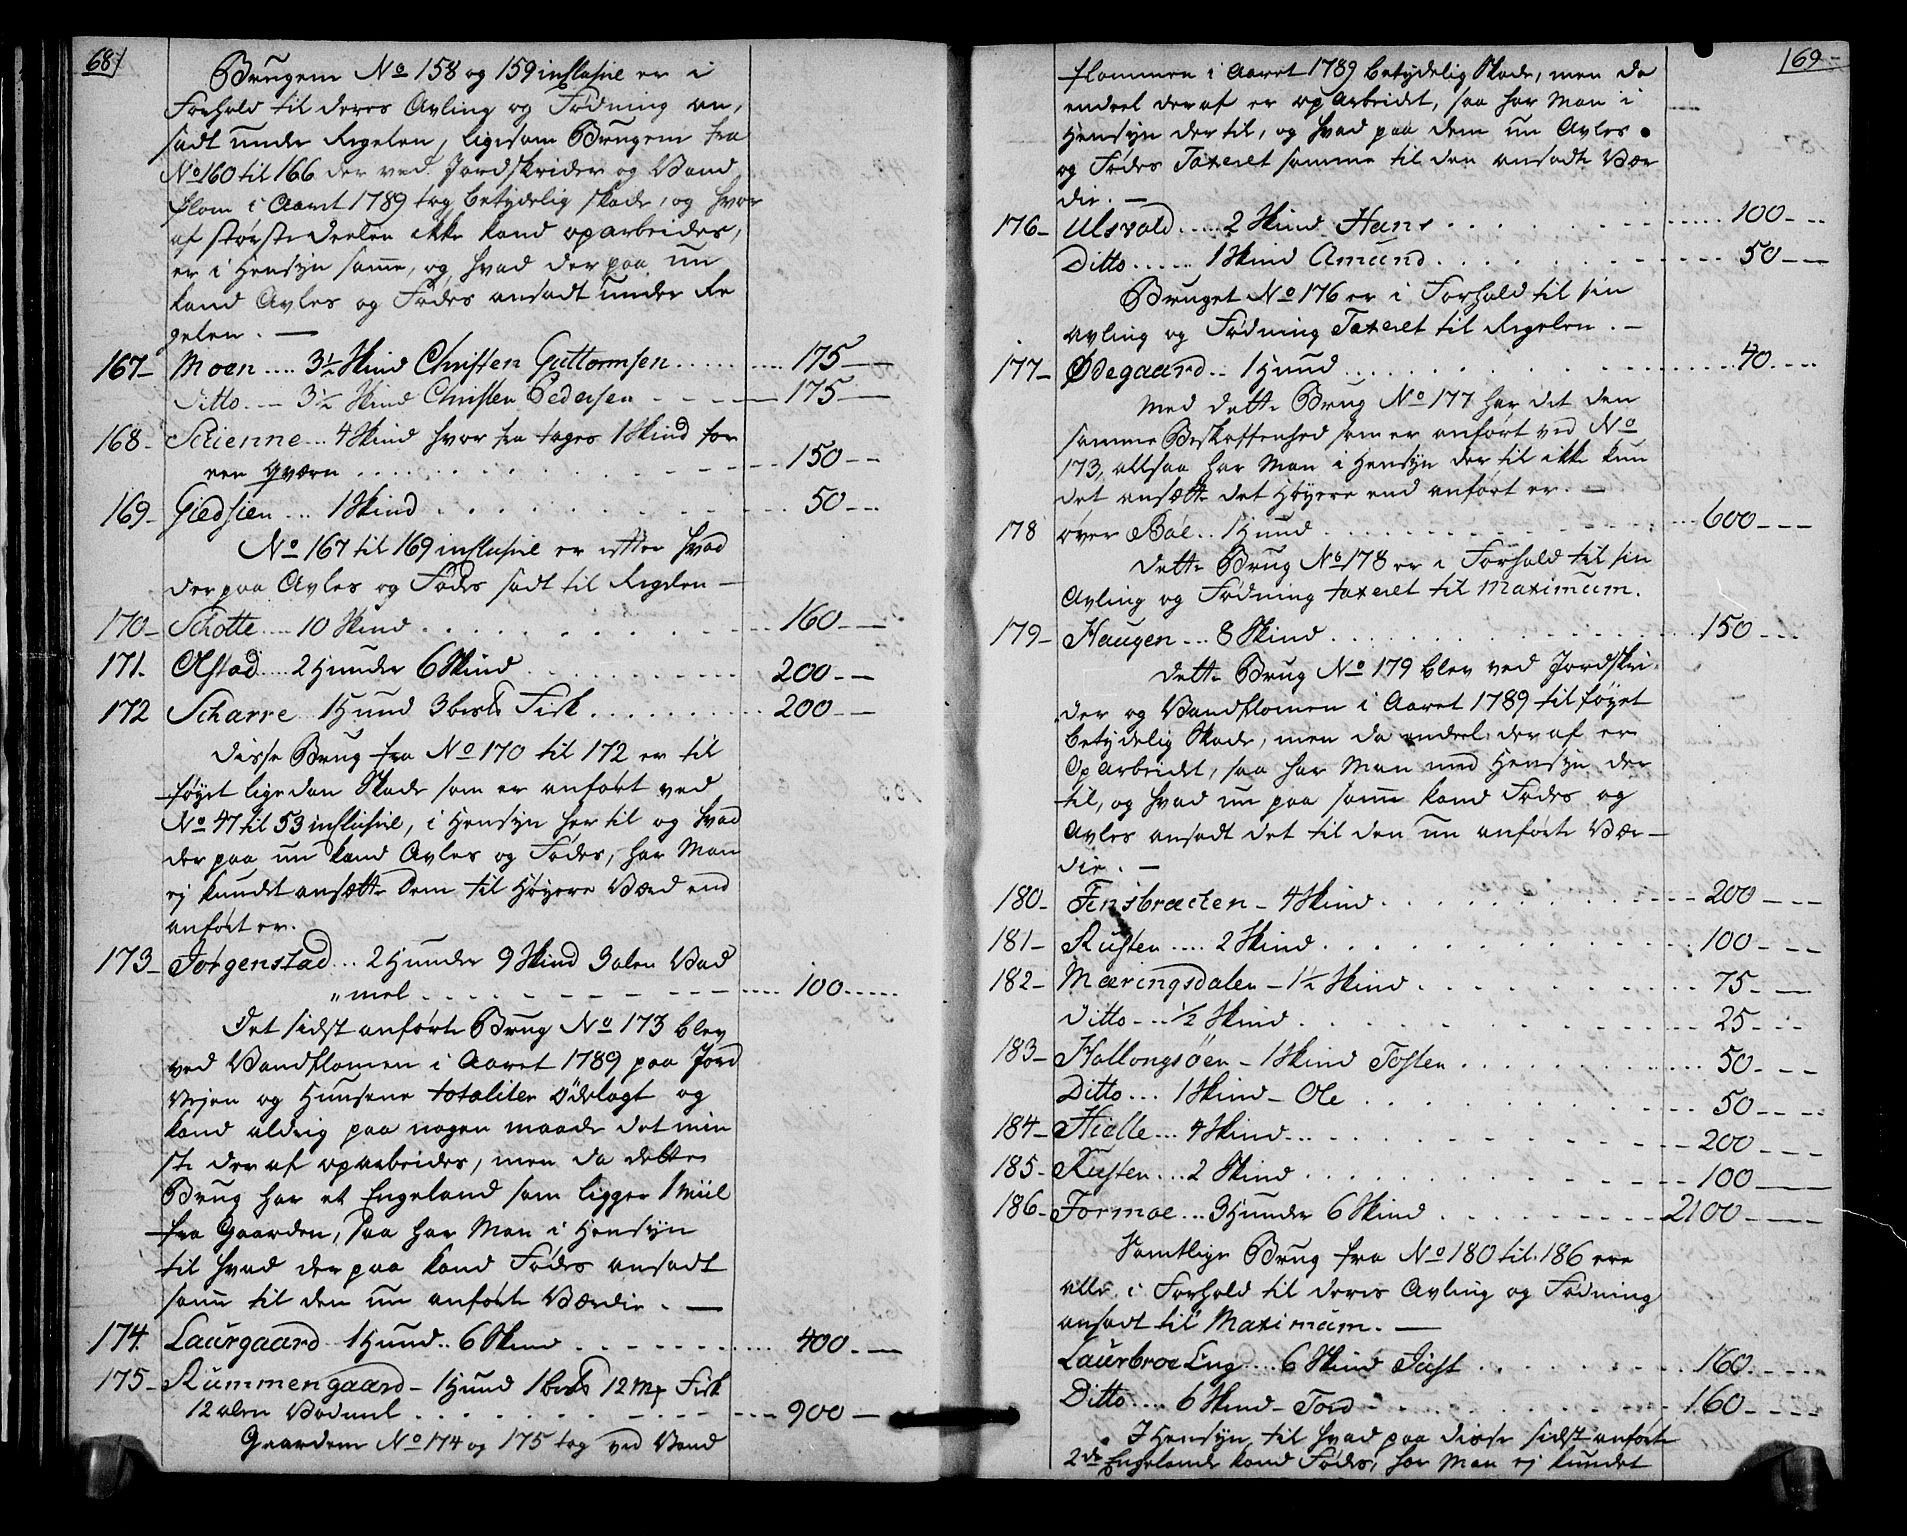 68
Brugene No 158 og 159 inclusive er i
Forhold til deres Avling og Fødning an,
sadt under Regelen, ligesom Brugene fra
No 160 til 166 der ved Jordskrider og Vand
flom i Aaret 1789 tog betydelig skade, og hvor
af største Deelen ikke kand oparbeides,
er i Hensyn samme, og hvad derpaa nu
kand Avles og Fødes ansadt under Re
gelen. —
167 - Moen .... 3½ Skind Christen Guttormsen ...... 175 —
Ditto .— 3½ Skind Christen Pedersen - - - - 175 —
168 - Stienne ... 4 Skind hvor fra tages 1 Skind for
een Qværn ........ 150 --
169 - Giedsien ... 1 Skind ........ 50 --
No 167 til 169 inclusive er efter hvad
derpaa Avles og Fødes sadt til Regelen —
170 - Schotte .... 10 Skind ........ 160 --
171. Olstad .... 2 Hunder 6 Skind ........ 200 --
172 Scharre 1 Hund 3 bis℔ Fisk ........ 200 --
Disse Brug fra No 170 til 172 er til
føyet ligedan Skade som er anført ved
No 47 til 53 inclusive, i Hensyn her til og hvad
derpaa nu kand Avles og Fødes, har Man
ej kundet ansætte dem til Høyere Værd end
anført er.
173 - Jørgenstad ... 2 Hunder 9 Skind 3 alen Vad
"mel ........ 100 ....
Det sidst anførte Brug No 173 blev
ved Vandflomen i Aaret 1789 paa Jord
Vejen og Huusene totaliter ødelagt og
kand aldrig paa nogen maade det min
ste deraf oparbeides, men da dette
Brug har et Engeland som ligger 1 Miil
fra Gaarden, saa har Man i Hensyn
til hvad derpaa kand Fødes ansadt
samme til den nu anførte Værdie. —
174. Laurgaard 1 Hund .. 6 Skind ........ 400 -
175 - Rummengaard - 1 Hund 1 bis℔ 12 Mk Fisk
12 alen Vadmel ........ 900 —
Gaardene No 174 og 175 tog ved Vand
169
flommen i Aaret 1789 betydelig Skade, men da
endeel deraf er oparbeidet, saa har Man i
Hensyn dertil, og hvad paa dem nu Avles
og Fødes Taxeret samme til den ansadte Vær
die. —
176 - Ulsvold ..... 2 Skind Hans ........ 100 - --
Ditto ...... 1 Skind Amund ........ 50 - --
Bruget No 176 er i Forhold til sin
avling og Fødning Taxeret til Regelen. —
177 - Ødegaard .. 1 Hund ........ 40 ....
Med dette Brug No 177 har det den
samme Beskaffenhed som er anført ved No
173, altsaa har Man i Hensyn der til ikke kun
det ansætte det Høyere end anført er. —
178 øver Bøe .. 1 Hund ........ 600 ---
Dette Brug No 178 er i Forhold til sin
Avling og Fødning taxeret til Maximum.
179 - Haugen ... 8 Skind ........ 150 - --
Dette Brug No 179 blev ved Jordskri,
der og Vandflomen i Aaret 1789 til føyet
betydelig Skade, men da endeel deraf er
Oparbeidet, saa har Man med Hensyn der
til, og hvad nu paa samme kand Fødes og
Avles ansadt det til den nu anførte Vær -
die. —
180 - Finsbraeten - 4 Skind ........ 200 - --
181 - Rusten ..... 2 Skind ........ 100 - --
182 - Mæringsdalen - 1½ Skind ........ 75 - —
Ditto ... ½ Skind ........ 25 - --
183 - Hallongsöen - 1 Skind Tosten ........ 50 - --
Ditto ... 1 Skind - Ole ........ 50 - --
184 - Hielle ... 4 Skind ........ 200 ---
185 - Rusten ... 2 Skind ........ 100 —
186 - Formoe ... 3 Hunder 6 Skind ........ 2100 ---
Samtlige Brug fra No 180 til 186 ere
alle i Forhold til deres Avling og Fødning
ansadt til Maximum. —
Laurbroe Eng .... 6 Skind Just ........ 160 - --
Ditto .... 6 Skind - Tord ........ 160 - --
I Hensyn til hvad paa disse sidst anførte
2de Engelande kand Fødes, har Man ej kundet